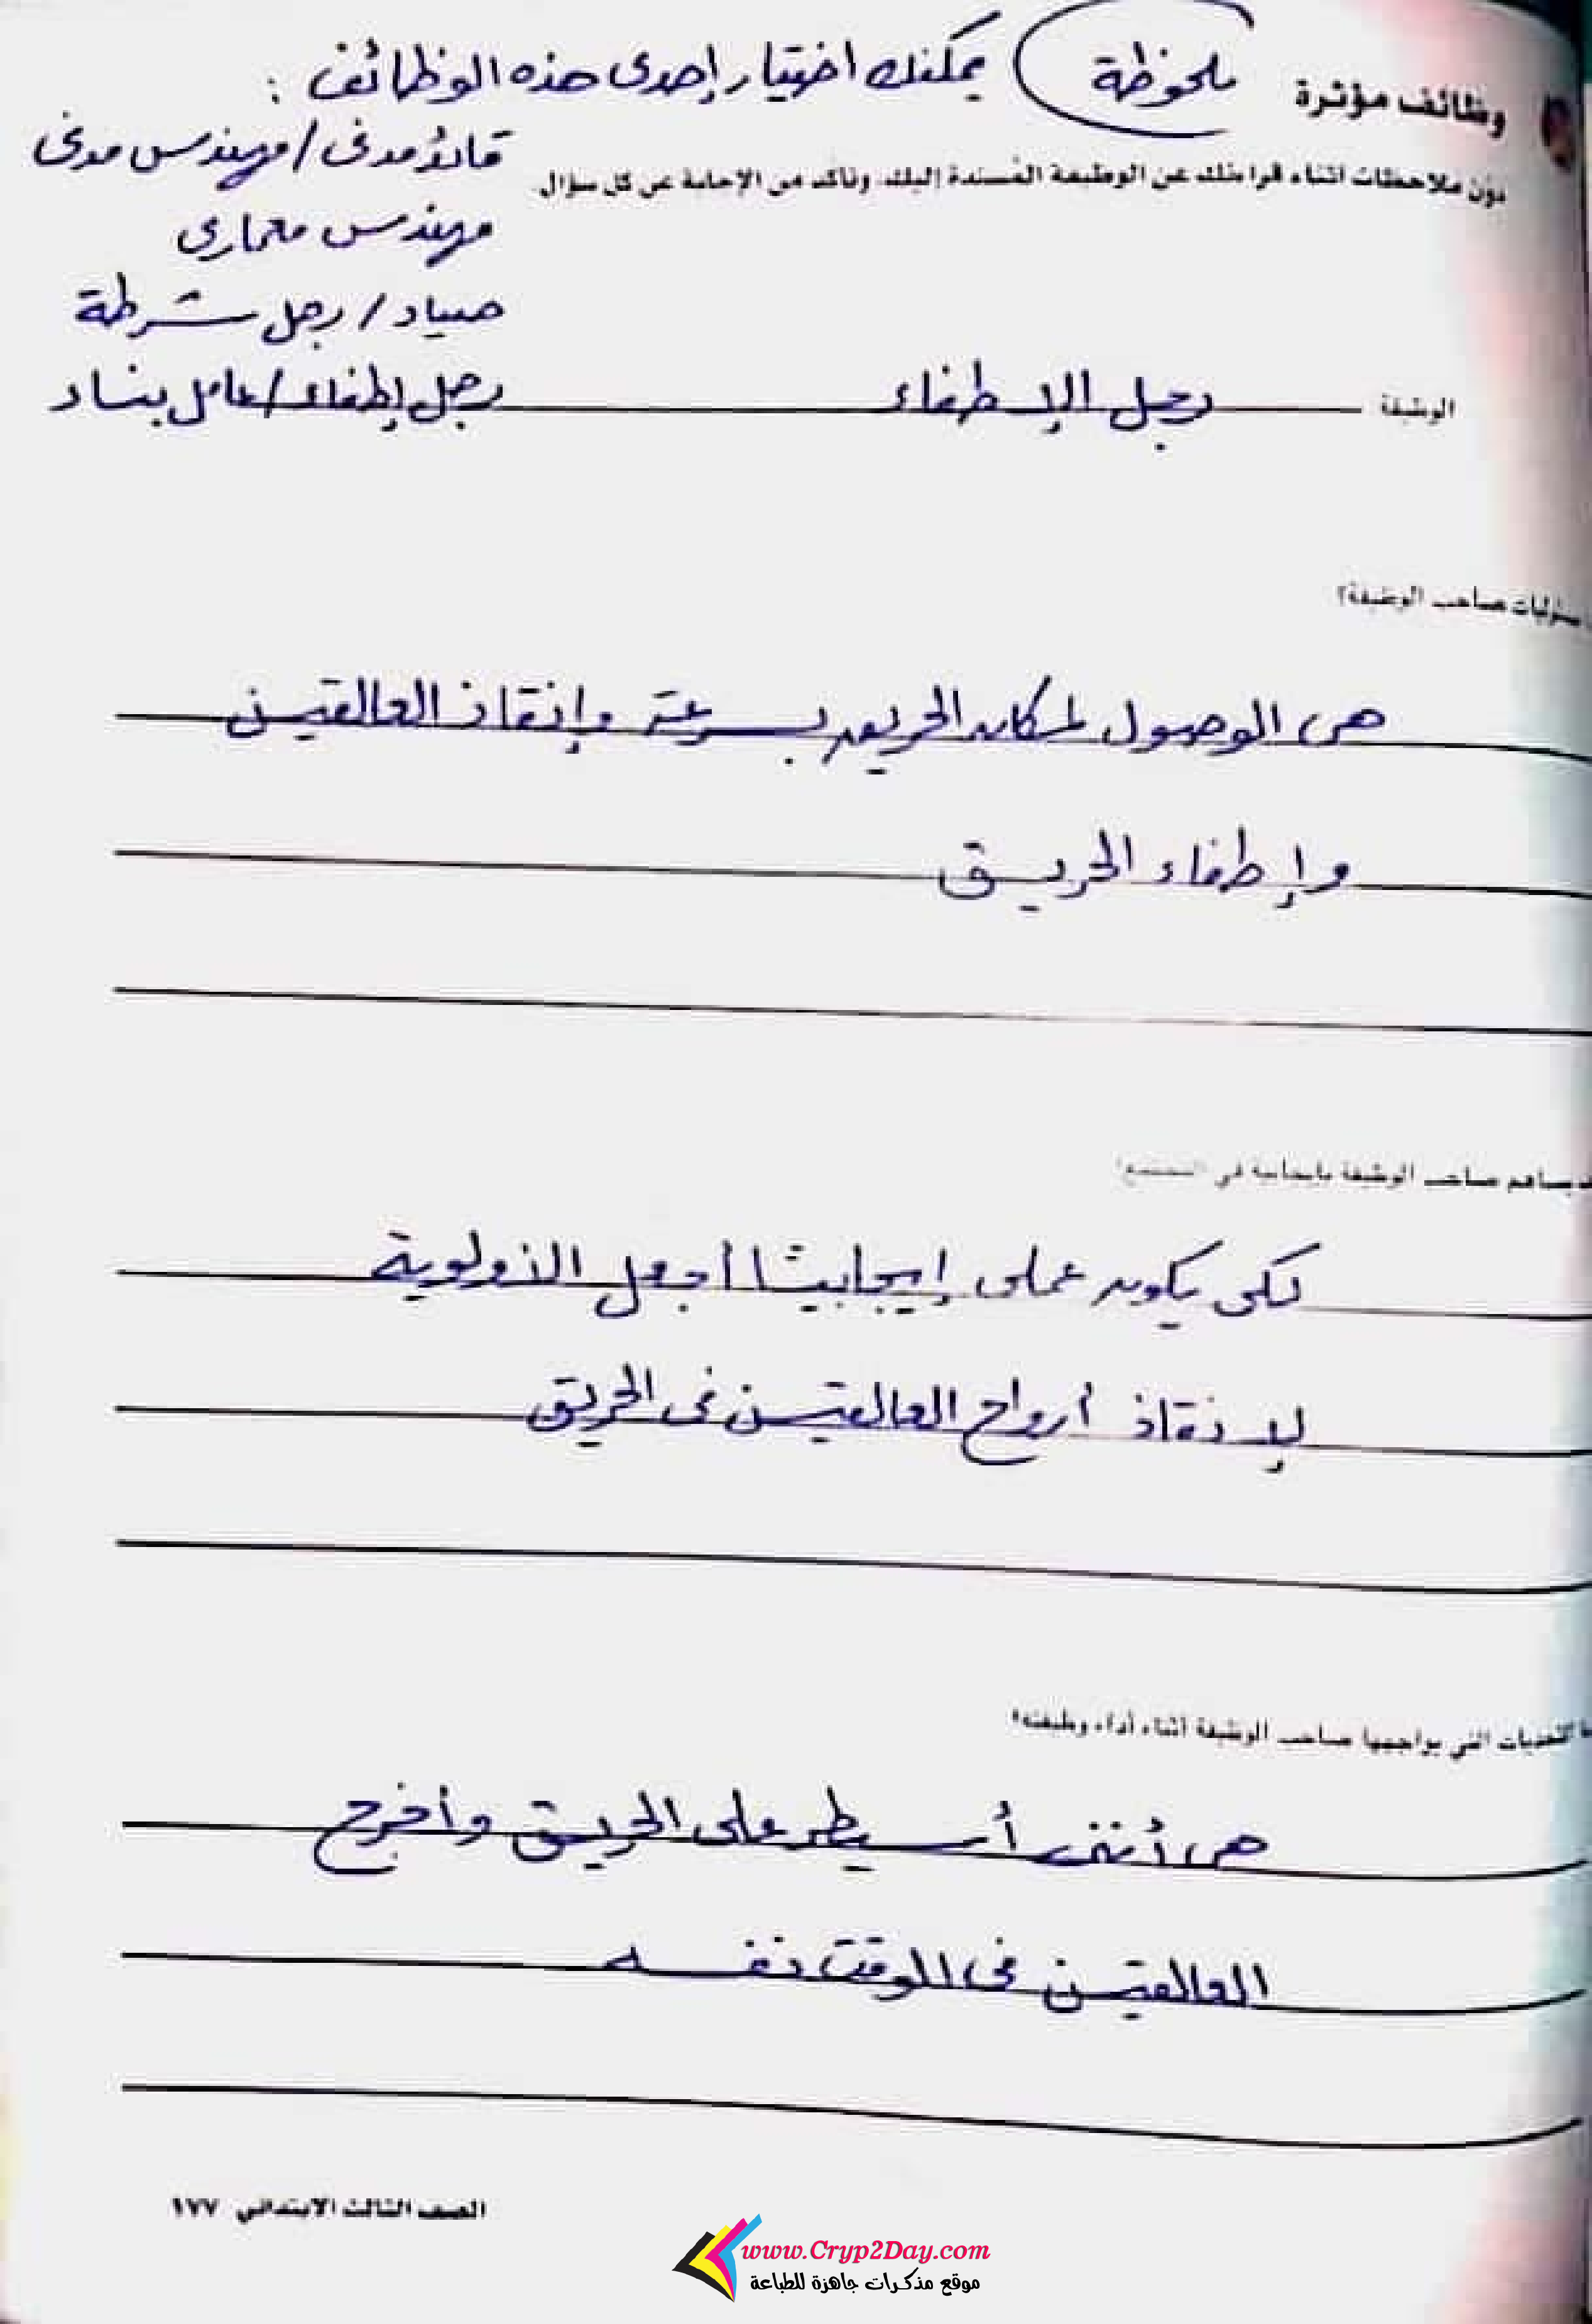 وظائف مؤثرة
ملحوظة يمكنك اختيار إحدى هذه الوظائف :
قائد مدنى / مهندس مدنى
دون ملاحظات أثناء قراءتك عن الوظيفة المُسندة إليك. وتأكد من الإجابة عن كل سؤال.
مهندس معمارى
صياد / رجل شرطة
رجل إطفاء / عامل بناء
الوظيفة رجل الإطفاء
صاحب الوظيفة؟
هى الوصول لمكان الحريق بسرعة وإنقاذ العالقين
وإطفاء الحريق
يساهم صاحب الوظيفة بإيجابية في المجتمع؟
لكى يكون عملى إيجابيًا أجعل الأولوية
لإنقاذ أرواح العالقين فى الحريق
التحديات التي يواجهها صاحب الوظيفة أثناء أداء وظيفته؟
هى أننى أسيطر على الحريق وأخرج
العالقين فى الوقت نفسه
الصف الثالث الابتدائي ١٧٧
www.Cryp2Day.com
موقع مذكرات جاهزة للطباعة